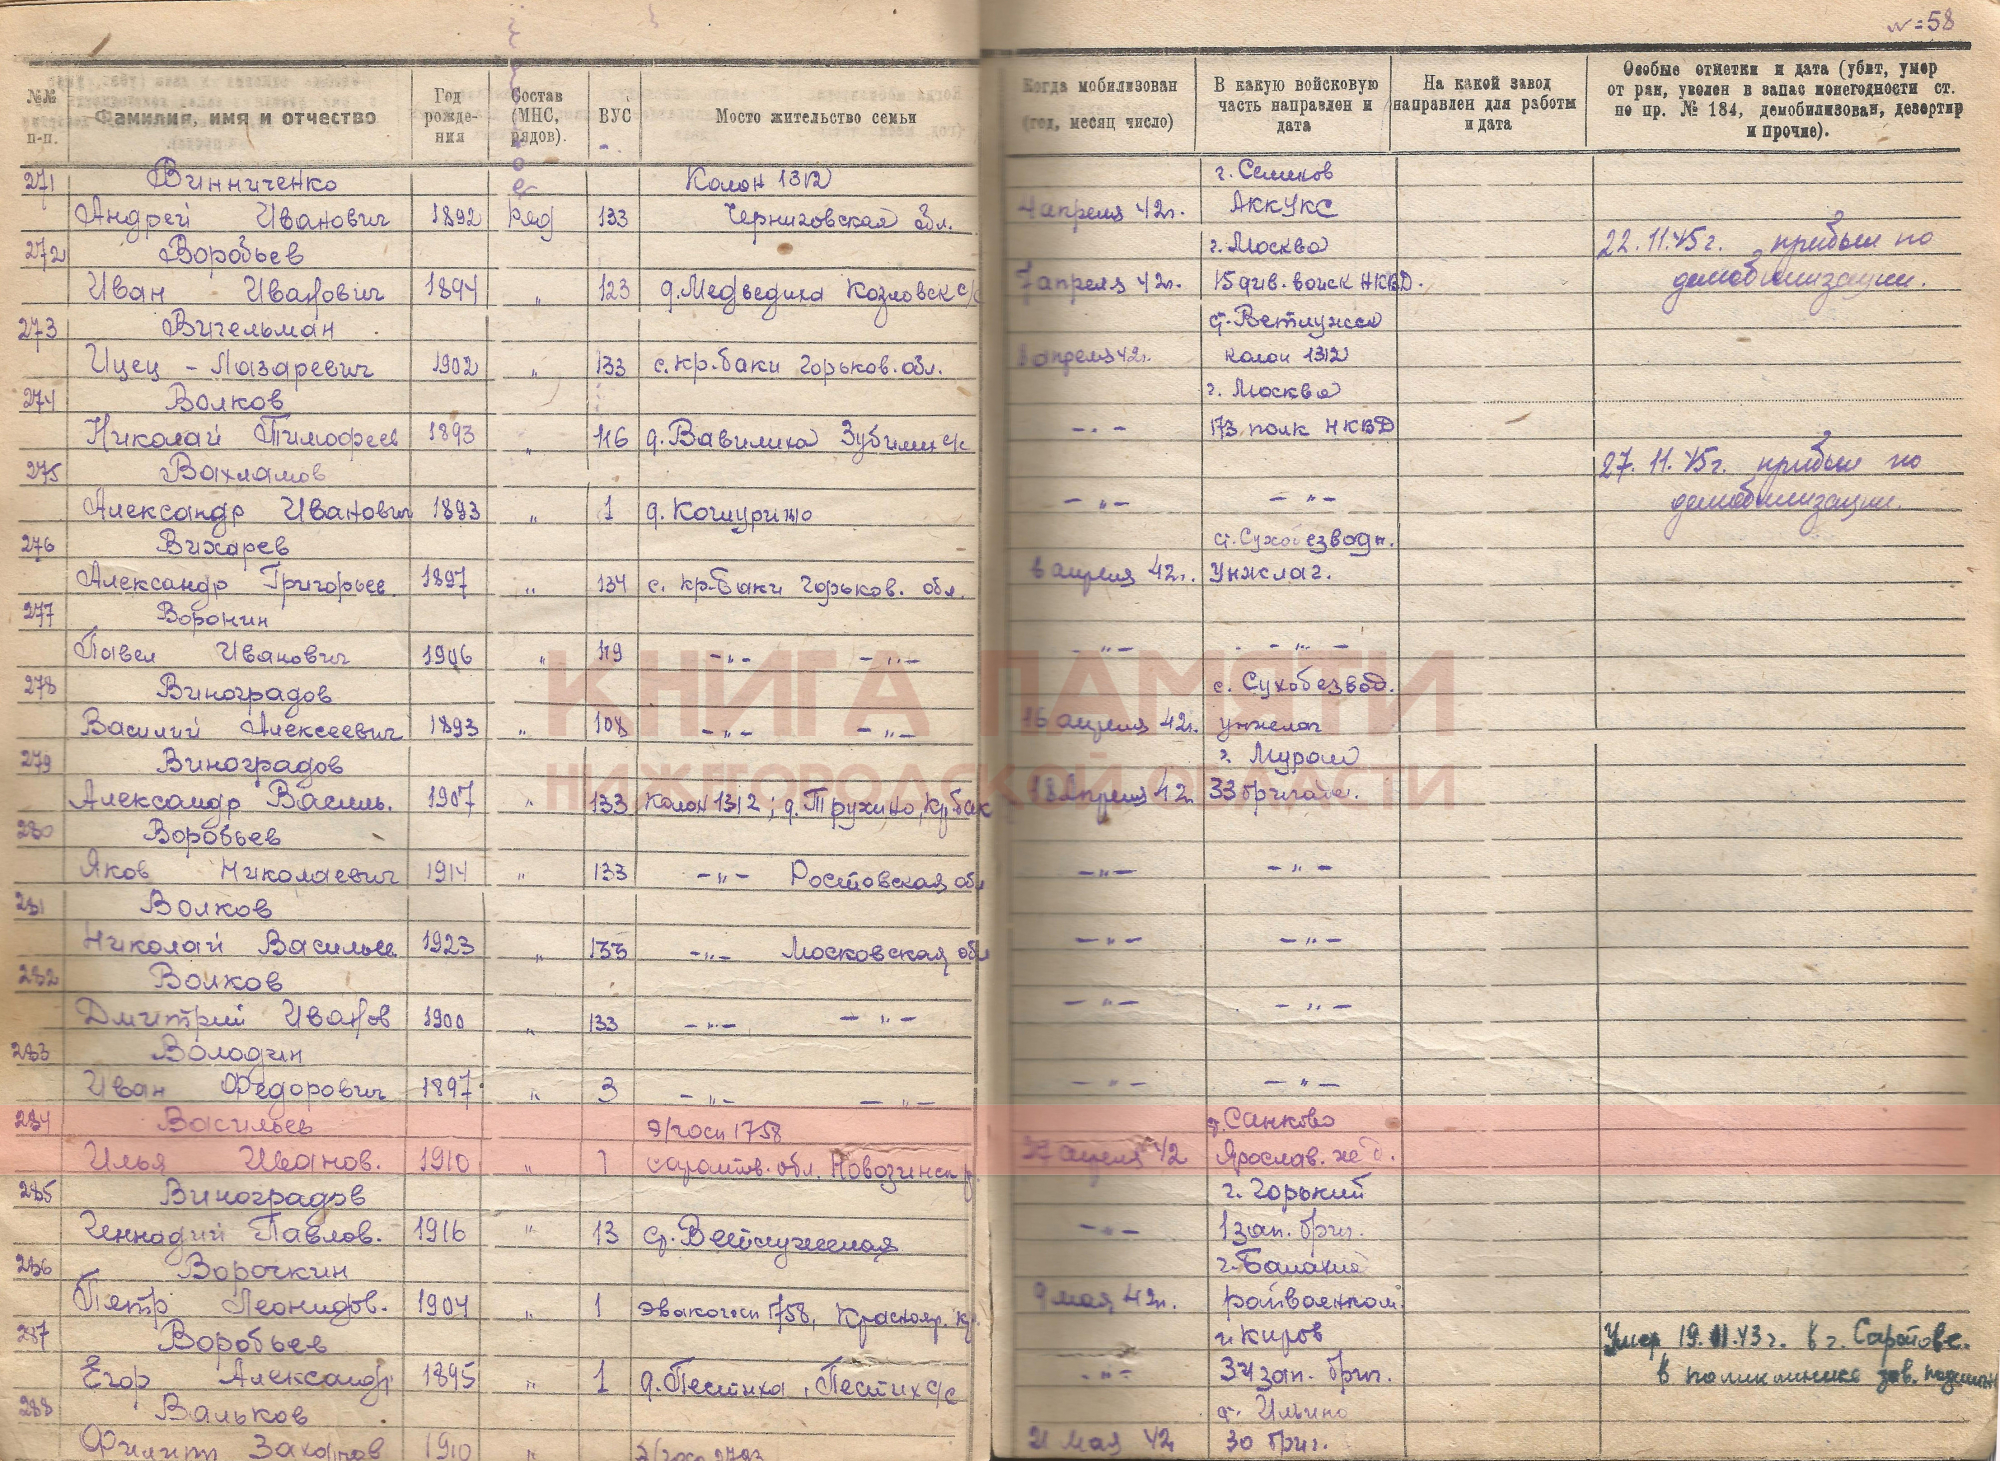 №=58
№№ п-п.
Фамилия, имя и отчество
Год рождения
Состав (МНС, рядов).
ВУС
Мосто жительство семьи
Когда мобилизован (год, месяц число)
В какую войсковую часть направлен и дата
На какой завод направлен для работы и дата
Особые отметки и дата (убит, умер от ран, уволен в запас монегодности ст. по пр. № 184, демобилизован, дезертир и прочие).
271 Винниченко Колон 1312 г. Семенов
Андрей Иванович 1892 ряд 133 Черниговская обл. 4 апреля 42г. АККУКС
272 Воробьев г. Москва 22.11.45г. прибыл по
Иван Иванович 1894 " 123 д. Медведиха Козловск с/с 7 апреля 42г. 15 див. войск НКВД. демобилизации.
273 Вигельман ст. Ветлужск
Ицец - Лазаревич 1902 " 133 с. Кр-баки Горьков. обл. апреля 42г. колон 1312
274 Волков г. Москва
Николай Тимофеев 1893 " 116 д. Вавилиха Зубили с/с -"- 173 полк НКВД
275 Вахламов 27.11.45г. прибыл по
Александр Иванович 1893 " 1 д. Кошурино -"- -"- демобилизации.
276 Вихарев ст. Сухобезводн.
Александр Григорьев. 1897 " 134 с. кр-Баки Горьков. обл. 6 апреля 42г. Унжлаг.
277 Воронин
Павел Иванович 1906 " 119 -"- -"- -"- -"-
278 Виноградов с. Сухобезвод.
Василий Алексеевич 1893 " 108 -"- -"- 16 апреля 42г. унжлаг
279 Виноградов г. Муром
Александр Василь. 1907 " 133 Колон 1312; д. Трухино, Кр.бак 18 апреля 42г. 33 бригада.
280 Воробьев
Яков Николаевич 1914 " 133 -"- Ростовская обл -"- -"-
281 Волков
Николай Васильев 1923 " 133 -"- Московская обл -"- -"-
282 Волков
Дмитрий Иванов 1900 " 133 -"- -"- -"- -"-
283 Володин
Иван Федорович 1897 " 3 -"- -"- -"- -"-
284 Васильев э/госп 1758 ст. Санково
Илья Иванов. 1910 " 1 саратов. обл. Новоузинск р. апреля 42 Ярослав. ж д.
285 Виноградов г. Горький
Геннадий Павлов. 1916 " 13 ст. Ветлужская -"- 1 зап. бриг.
286 Ворочкин
Петр Леонидов. 1904 " 1 эвакогосп 1758, Краснояр. кр. 9 мая 42г. райвоенком.
287 Воробьев г. Киров Умер 19.11.43г. в г. Саратове.
Егор Александр 1895 " 1 д. Пестиха, Пестих с/с -"- 34 зап. бриг. в поликлинике зав.
288 Вальков ст. Ильино
Филипп Захаров 1910 " 21 мая 42 30 бриг.
КНИГА ПАМЯТИ
НИЖЕГОРОДСКОЙ ОБЛАСТИ